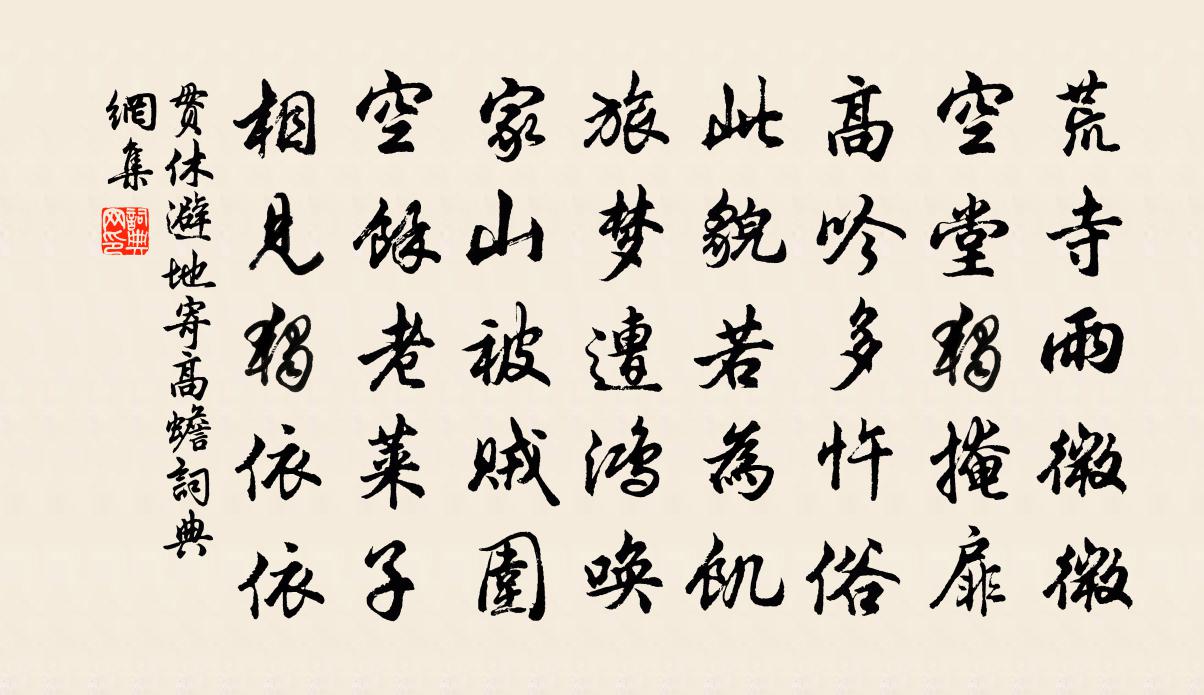 荒寺雨微微
空堂獨掩扉
高吟多忤俗
此貌若為飢
旅梦遭鴻喚
家山被賊圍
空餘老萊子
相見獨依依
貫休避地寄高蟾詞典
網集
詞典
网印